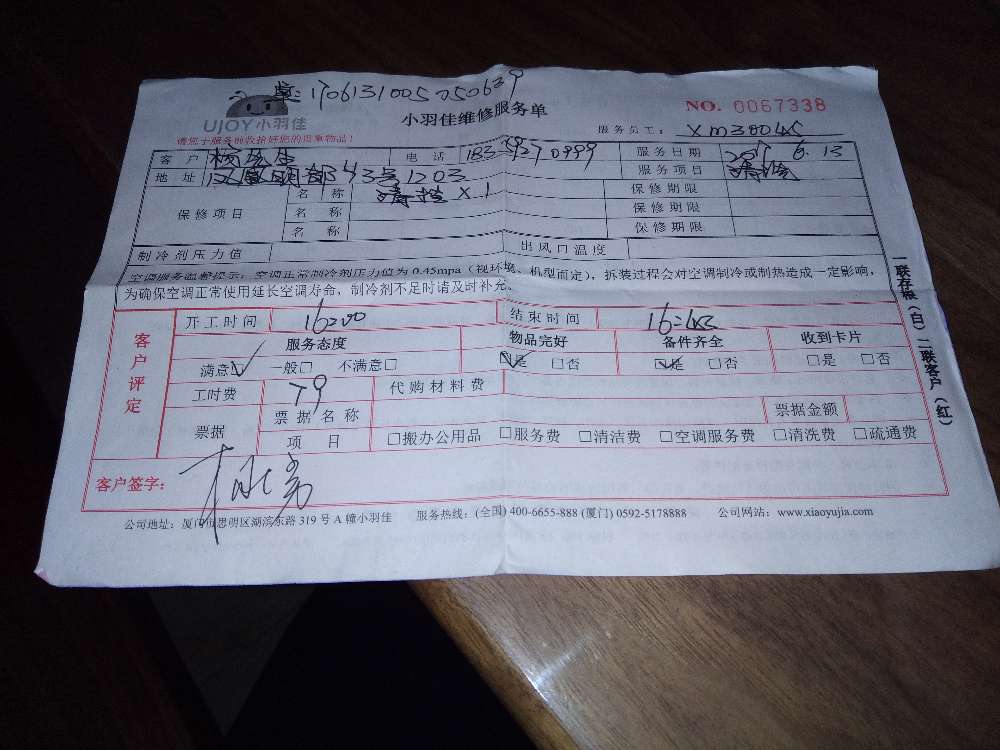 1706131005050639
UJOY小羽佳
小羽佳维修服务单
NO. 0067338
请您于服务前收拾好您的贵重物品!
服务员工: XM38045
客户 电话 服务日期 6.13
地址 343号1203 服务项目 清洗
保修项目 名称 清洗 X.1 保修期限
名称 保修期限
名称 保修期限
制冷剂压力值 出风口温度
空调服务温馨提示:空调正常制冷剂压力值为0.45mpa(视环境、机型而定),拆装过程会对空调制冷或制热造成一定影响,
为确保空调正常使用延长空调寿命,制冷剂不足时请及时补充。
客户评定
开工时间 16:00 结束时间 16:45
服务态度 物品完好 备件齐全 收到卡片
满意☑ 一般□ 不满意□ ☑是 □否 ☑是 □否 □是 □否
工时费 79 代购材料费
票据 票据名称 票据金额
项目 □搬办公用品 □服务费 □清洁费 □空调服务费 □清洗费 □疏通费
客户签字:
公司地址:厦门市思明区湖滨东路319号A幢小羽佳 服务热线:(全国)400-6655-888 (厦门)0592-5178888 公司网站:www.xiaoyujia.com
一联存根(白)二联客户(红)